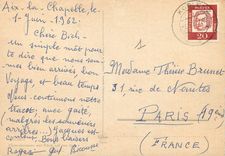 Aix-la-Chapelle, le
1 Juin, 1962.
Chère Bich
un simple mot pour
te dire que nous som-
mes bien arrivés, bon
Voyage, et beau temps
nous continuons notre
avec gaité,
malgré les
Jacques est
content, Bons baisers
20
Madame Thérèse Brunet
31, rue de Nantes
PARIS 19e
(FRANCE)